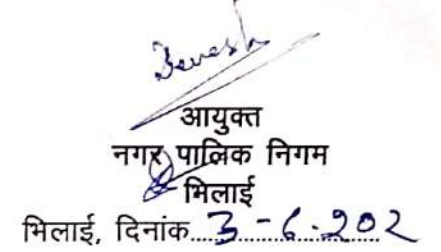 आयुक्त
नगर पालिक निगम
भिलाई
भिलाई, दिनांक.....3-6.202